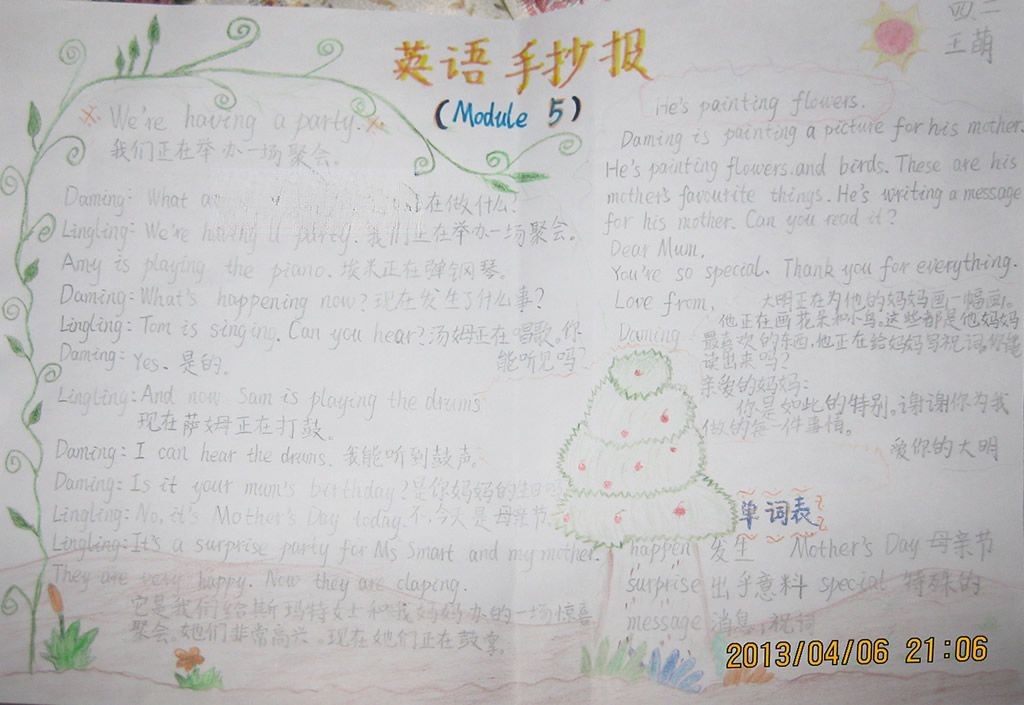 英语手抄报
(Module 5)
四、二
王萌
We're having a party.
我们正在举办一场聚会。
Daming: What 在做什么?
Lingling: We're having a party. 我们正在举办一场聚会。
Amy is playing the piano. 埃米正在弹钢琴。
Daming: What's happening now? 现在发生了什么事?
Lingling: Tom is singing. Can you hear? 汤姆正在唱歌。你
能听见吗?
Daming: Yes. 是的。
Lingling: And now Sam is playing the drums
现在萨姆正在打鼓。
Daming: I can hear the drums. 我能听到鼓声。
Daming: Is it your mum's birthday? 是你妈妈的生日吗
Lingling: No, it's Mother's Day today. 不,今天是母亲节
Lingling: It's a surprise party for Ms Smart and my mother.
They are very happy. Now they are claping.
它是我们给斯玛特女士和我妈妈办的一场惊喜
聚会。她们非常高兴。现在她们正在鼓掌。
He's painting flowers.
Daming is painting a picture for his mother.
He's painting flowers and birds. These are his
mother's favourite things. He's writing a message
for his mother. Can you read it?
Dear Mum,
You're so special. Thank you for everything.
Love from,
Daming
大明正在为他的妈妈画一幅画。
他正在画花朵和小鸟。这些都是他妈妈
最喜欢的东西。他正在给妈妈写祝词。你能
读出来吗?
亲爱的妈妈:
你是如此的特别。谢谢你为我
做的每一件事情。
爱你的大明
单词表
happen 发生 Mother's Day 母亲节
surprise 出乎意料 special 特殊的
message 消息,祝词
2013/04/06 21:06